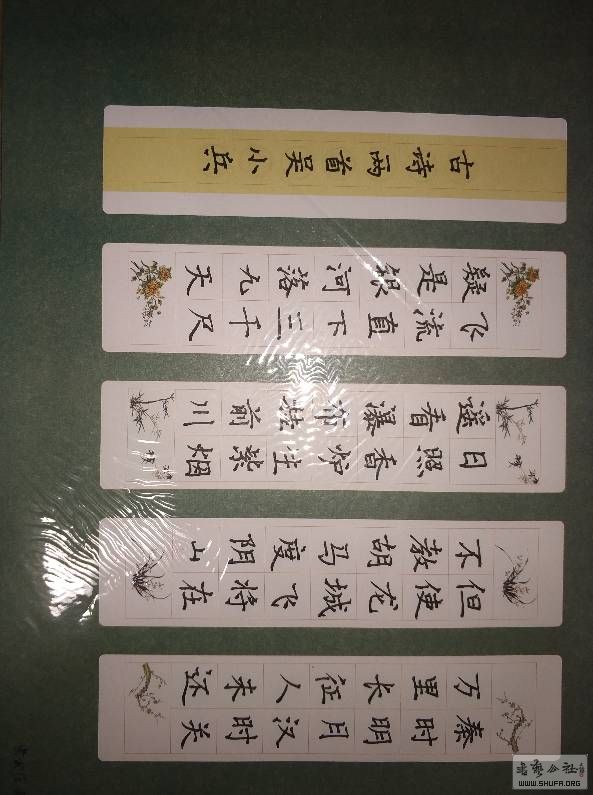 秦时明月汉时关
万里长征人未还
但使龙城飞将在
不教胡马度阴山
日照香炉生紫烟
遥看瀑布挂前川
飞流直下三千尺
疑是银河落九天
古诗两首吴小兵
書藝公社
WWW.SHUFA.ORG